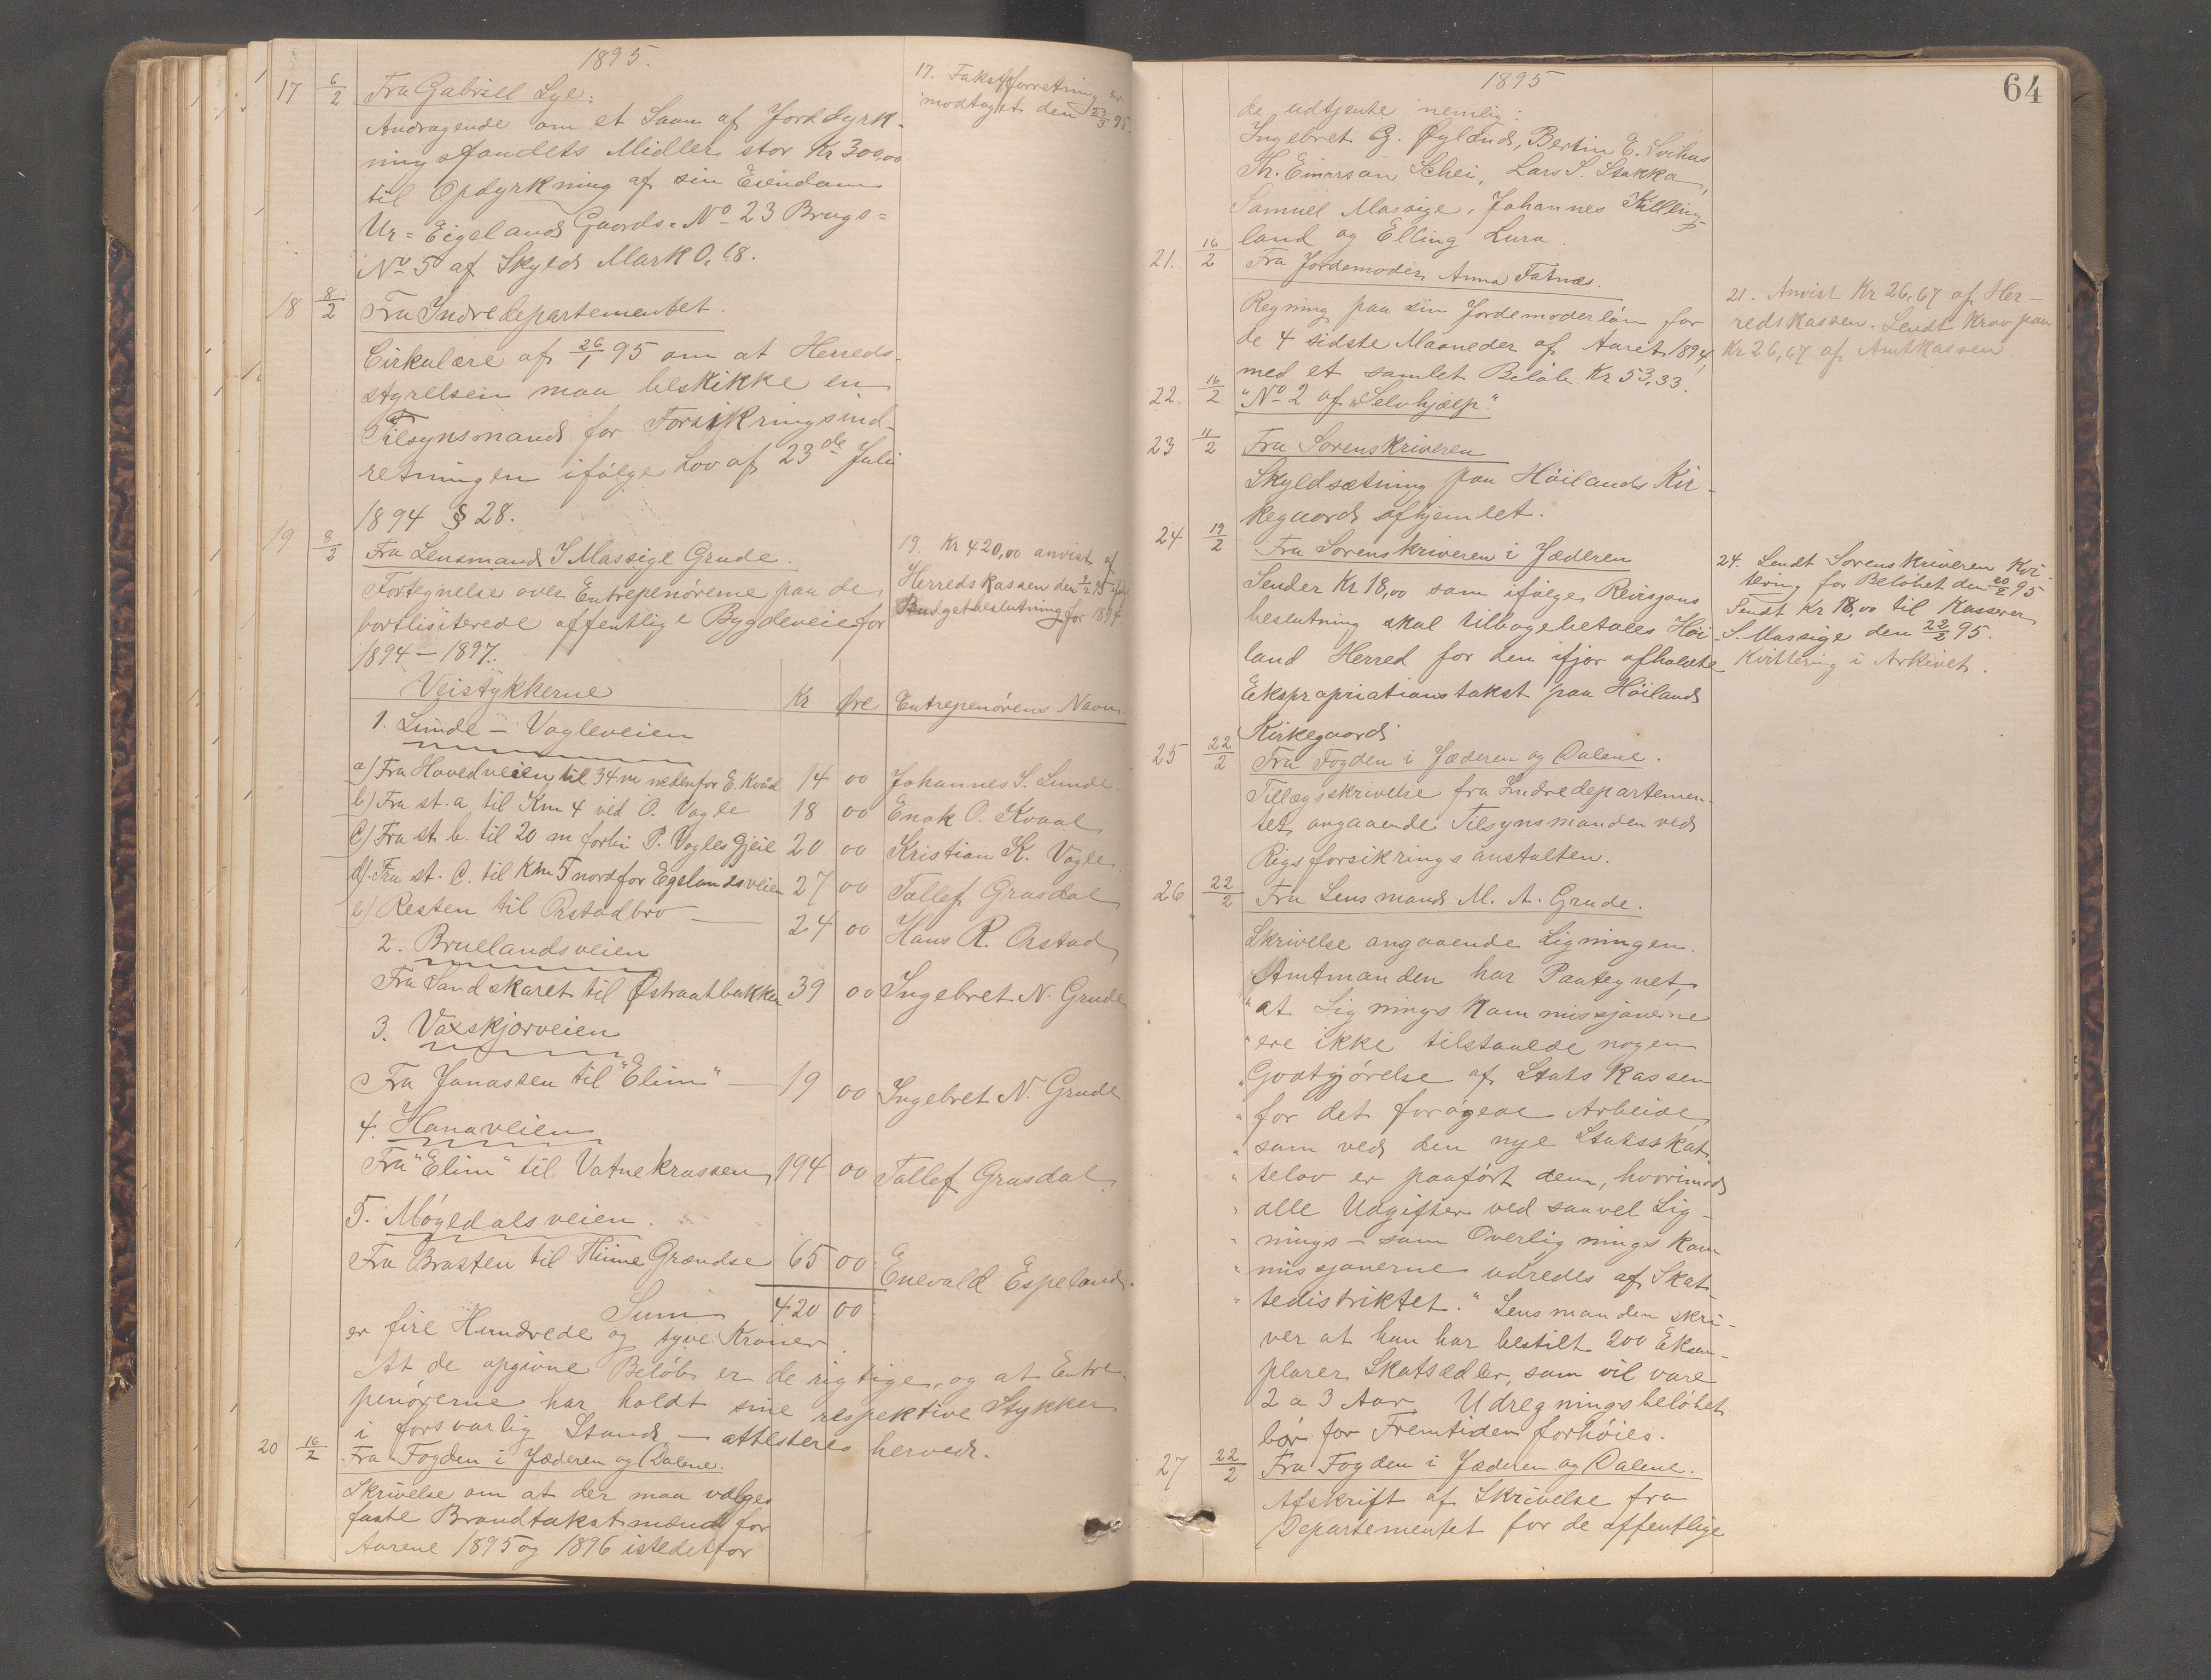 1895.
17 6/2 Fra Gabriel Lye:
Andragende om et Laan af Jorddyrk-
ningsfondets Midler stor Kr 300,00
til Opdyrkning af sin Eiendom
Ur=Eigeland Gaards-No 23 Brugs=
No 5 af Skyld Mark 0,68.
17. Takstforretning er
modtaget den 23/3 95.
18 8/2 Fra Indredepartementet.
Cirkulære af 26/1 95 om at Herreds-
styrelsen maa beskikke en
Tilsynsmand for Forsikringsind-
retningen ifølge Lov af 23de Juli
1894 § 28.
19 8/2 Fra Lensmand I Massige Grude.
Fortegnelse over Entrepenørerne paa de
bortlisiterede offentlige Bygdeveie for
1894 – 1897.
19. Kr 420,00 anvist af
Herredskassen den 95 ifølge
Budgetbeslutning for 1894.
Veistykkerne Kr Øre Entrepenørens Navn.
1. Lunde – Vagleveien
a) Fra Hovedveien til 34 m nedenfor E. Kvål 14 00 Johannes S. Lunde
b) Fra st. a til Km 4 ved O. Vagle 18 00 Enok O. Kvaal
c) Fra st. b. til 20 m forbi P. Vagles Gjeil 20 00 Kristian K. Vagle
d). Fra st. C. til Km 5 nordfor Egelandsveien 27 00 Tallef Grusdal
e) Resten til Orstadbro — 24 00 Hans R. Orstad
2. Bruelandsveien
Fra Sandskaret til Østraatbakken 39 00 Ingebret N. Grude
3. Vaxskjorveien
Fra Jonassen til "Elim" — 19 00 Ingebret N. Grude
4. Hanaveien
Fra "Elim" til Vatnekrossen 194 00 Tallef Grusdal.
5. Møgledalsveien.
Fra Brasten til Thime Grændse 65 00 Enevald Espeland.
Sum 420 00
er fire Hundrede og tyve Kroner.
At de opgivne Beløb er de rigtige, og at Entre-
penørerne har holdt sine respektive Stykker
i forsvarlig Stand — attesteres herved.
20 16/2 Fra Fogden i Jæderen og Dalene.
Skrivelse om at der maa vælges
faste Brandtakstmænd for
Aarene 1895 og 1896 istedetfor
64
1895
de udtjente nemlig:
Ingebret G. Øyland, Bertin E. Svihus
Th. Einarson Schei, Lars S. Stokka,
Samuel Massige, Johannes Kylling-
land og Elling Lura.
21. 16/2 Fra Jordemoder Anna Fatnæs.
Regning paa sin Jordemoderløn for
de 4 sidste Maaneder af Aaret 1894,
med et samlet Beløb Kr 53,33.
21. Anvist Kr 26,67 af Her-
redskassen. Sendt Krav paa
Kr 26,67 af Amtkassen
22. 16/2 "No 2 af „Selvhjælp“.
23 11/2 Fra Sorenskriveren
Skyldsætning paa Höilands Kir-
kegaard afhjemlet.
24 19/2 Fra Sorenskriveren i Jæderen
Sender Kr 18,00 som ifølge Revisjons
beslutning skal tilbagebetales Höi
land Herred for den ifjor afholdte
Ekspropriationstakst paa Höiland
Kirkegaard.
24. Sendt Sorenskriveren Kvi-
tering for Beløbet den 20/2 95
Sendt Kr 18,00 til Kasserer
S. Massige den 22/2 95.
Kvittering i Arkivet.
25 22/2 Fra Fogden i Jæderen og Dalene.
Tillægsskrivelse fra Indredepartemen-
tet angaaende Tilsynsmanden ved
Rigsforsikringsanstalten.
26 22/2 Fra Lensmand M. A. Grude.
Skrivelse angaaende Ligningen.
"Amtmanden har Paategnet,
" at Ligningskommissjonerne
" ere ikke tilstaaede nogen
" Godtgjørelse af Statskassen
" for det forøgede Arbeide,
" som ved den nye Statsskat-
" telov er paaført dem, hvorimod
" alle Udgifter ved saavel Lig-
" nings – som Overligningskom
" missjonerne udredes af Skat-
" tedistriktet." Lensmanden skri-
ver at han har bestilt 200 Eksem-
plarer Skatsedler, som vil vare
2 a 3 Aar. Udregningsbeløbet
bør for Fremtiden forhøies.
27 22/2 Fra Fogden i Jæderen og Dalene.
Afskrift af Skrivelse fra
Departementet for de offentlige